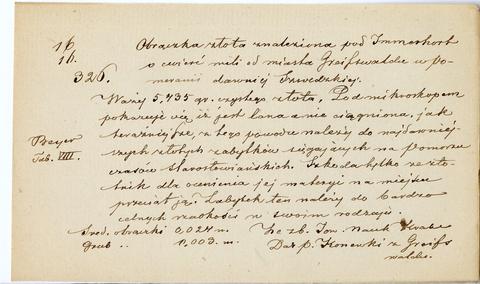 16
16.
326.
Obrączka złota znaleziona pod Immenhort
o ćwierć mili od miasta Greifswalde w Po-
meranii dawniej Szwedzkiej.
Waży 5,735 gr. czystego złota, Pod mikroskopem
pokazuje się iż jest lana a nie ciągniona, jak
teraźniejsze, z tego powodu należy do najdawniej-
szych złotych zabytków sięgających na Pomorzu
czasów Starosłowiańskich. Szkoda tylko że zło-
tnik dla ocenienia jej materyi na miejscu
przeciął ją. Zabytek ten należy do bardzo
celnych rzadkości w swoim rodzaju.
Beyer
Tab. VIII.
Śred. obrączki 0,024 m.
Grub. „ 0,003. m.
Ze zb. Tow. Nauk. Krak.
Dar p. Konewki z Greifs
walde.